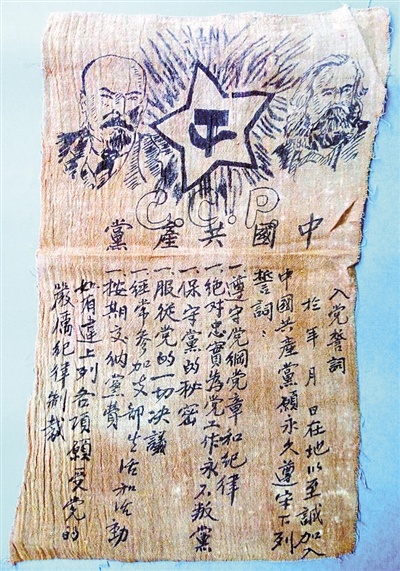 C.C.P
中國共產黨
入党誓詞
於 年 月 日在地以至誠加入
中國共產黨願永久遵守下列
誓詞：
一遵守党綱党章和紀律
一絕对忠實為党工作永不叛黨
一保守黨的秘密
一服從党的一切决議
一經常參加支部生活和活動
一按期交納黨費
如有違上列各項願受党的
嚴厲紀律制裁